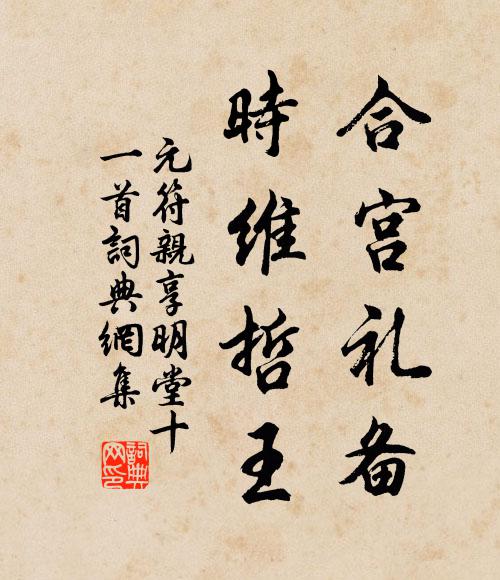 合宫礼备
時維哲王
元符親享明堂十
一首詞典網集
詞典网印